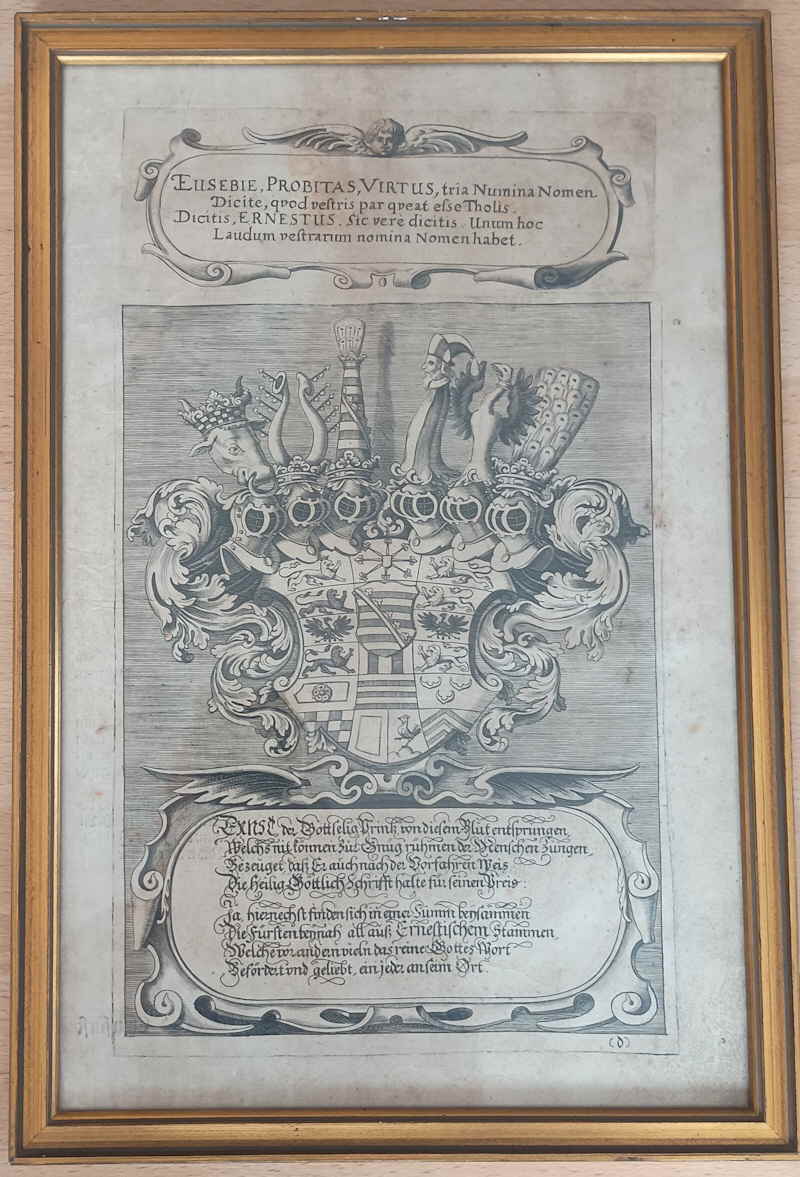 EUSEBIE, PROBITAS, VIRTUS, tria Numina Nomen
Dicite, qvod vestris par qveat esse Tholis.
Dicitis, ERNESTUS. sic vere dicitis. Unum hoc
Laudum vestrarum nomina Nomen habet.
Ernst der Gottselig Printz von diesem Blut entsprungen,
Welchs nit können zur Gnüg rühmen der Menschen Zungen,
Bezeuget daß Er auch nach der Vorfahren Weis
Die Heilig Göttlich Schrifft halte für seinen Preis:
Ja, hiernechst finden sich in einer Summ beysammen
Die Fürsten beynah all auß Ernestischem Stammen,
Welche vor andern vieln das reine Gottes Wort
Befördert und geliebt, ein jeder an seim Ort.
(d)